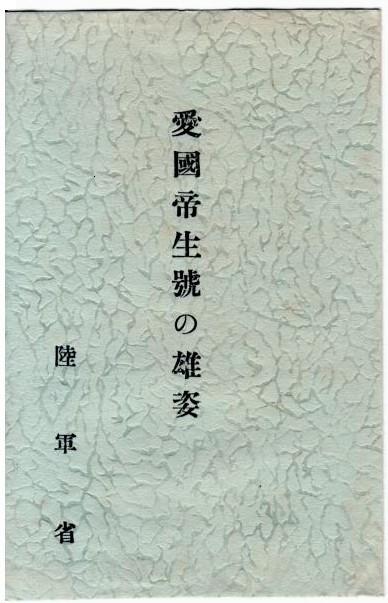 愛國帝生號の雄姿
陸軍省